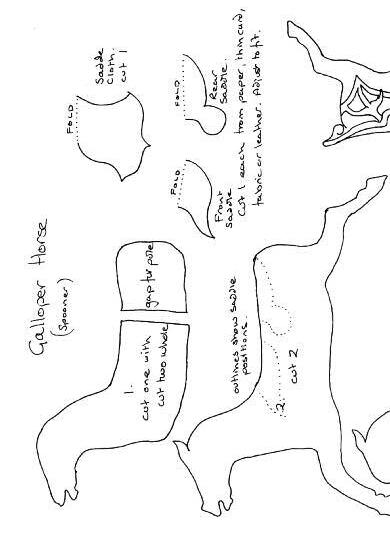 Galloper Horse
(Spooner)
FOLD
Saddle
Cloth.
cut 1
FOLD
Rear
Saddle.
FOLD
Front
Saddle
Cut 1 each from paper, thin card,
fabric or leather. Adjust to fit.
1.
cut one with
cut two whole
gap for pole
outlines show saddle
positions.
2.
cut 2